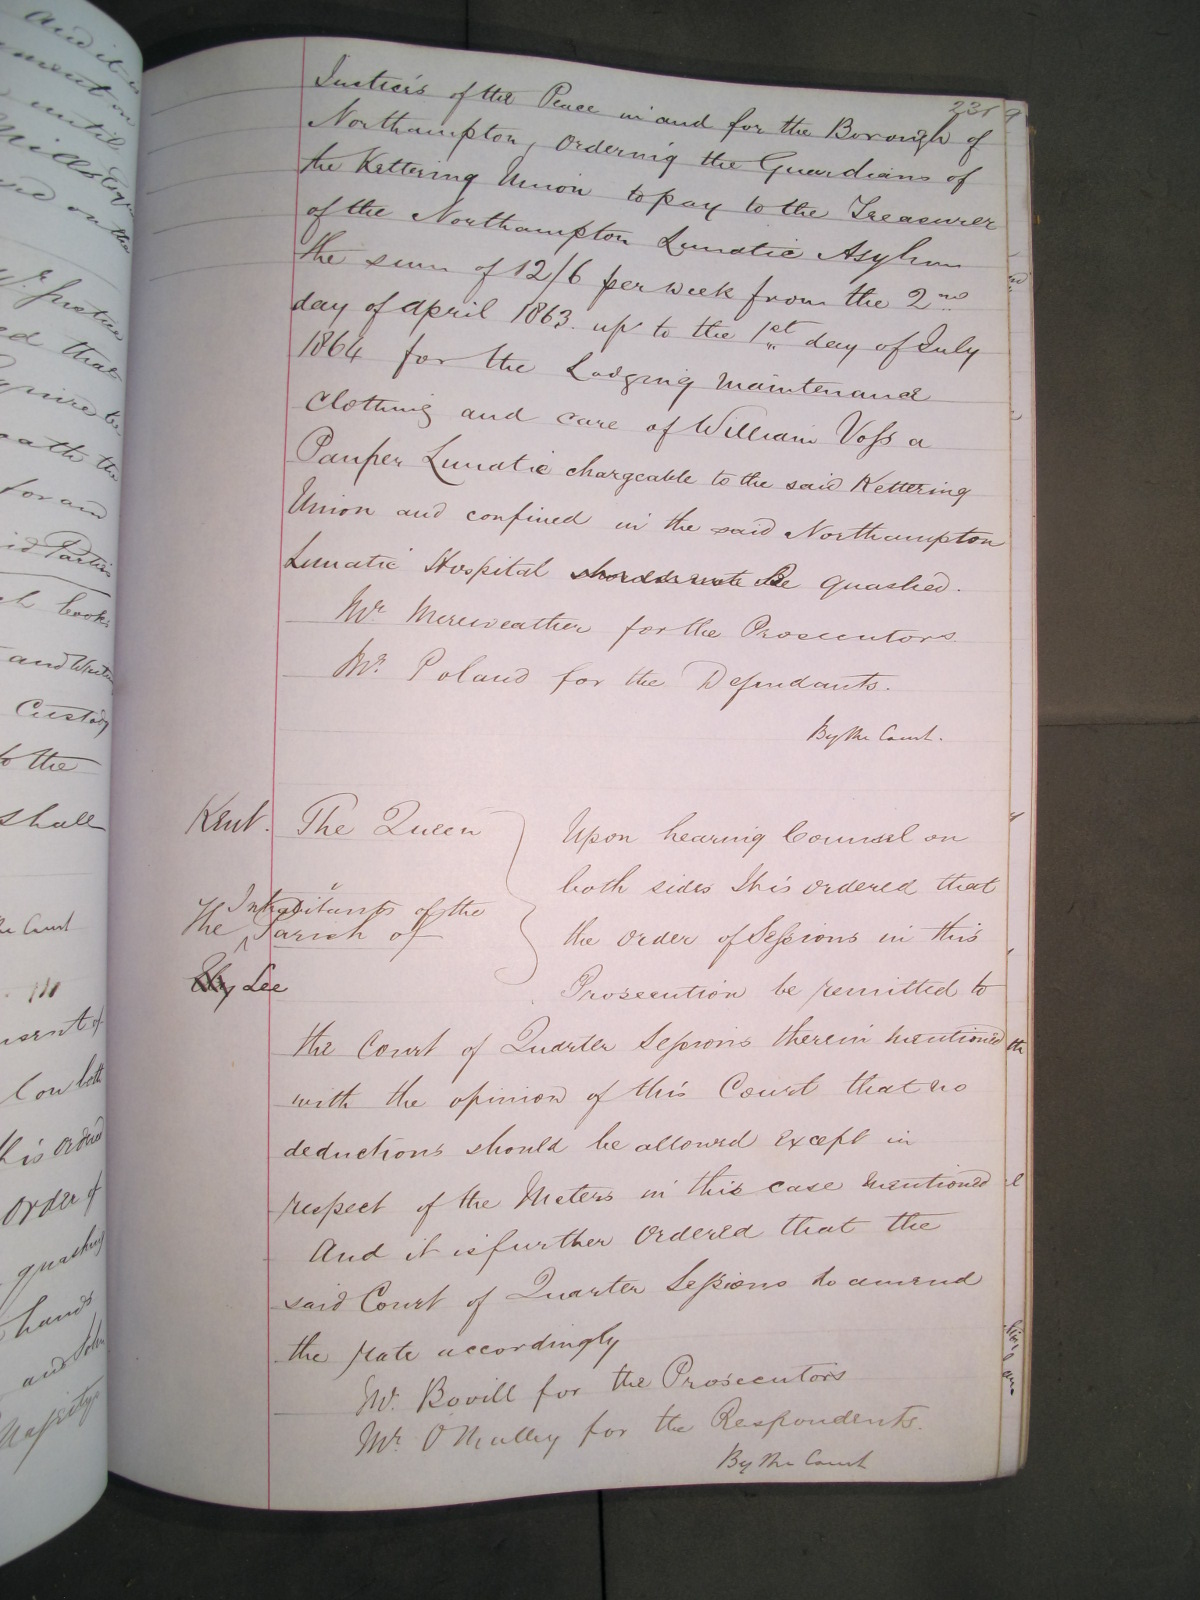 231
Justices of the Peace in and for the Borough of
Northampton, ordering the Guardians of
the Kettering Union to pay to the Treasurer
of the Northampton Lunatic Asylum
the sum of 12/6 per week from the 2nd
day of April 1863 up to the 1st day of July
1864 for the Lodging maintenance
clothing and care of William Voss a
Pauper Lunatic chargeable to the said Kettering
Union and confined in the said Northampton
Lunatic Hospital should not be quashed.
Mr Mereweather for the Prosecutors.
Mr. Poland for the Defendants.
By the Court.
Kent. The Queen
Inhabitants of the
The Parish of
Lee
Upon hearing Counsel on
both sides It is ordered that
the order of Sessions in this
Prosecution be remitted to
the Court of Quarter Sessions therein mentioned
with the opinion of this Court that no
deductions should be allowed except in
respect of the Meters in this case mentioned
And it is further ordered that the
said Court of Quarter Sessions do amend
the rate accordingly
Mr. Bovill for the Prosecutors
Mr. O'Malley for the Respondents.
By the Court
and it is
until
on the
that
oath the
for and
Parties
books
and
Custody
to the
shall
Court
of
both
his ordered
order of
quashing
hands
and John